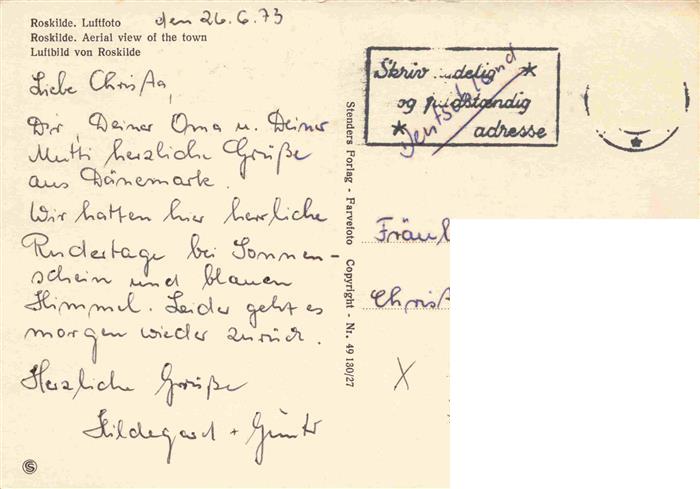 Roskilde. Luftfoto
den 26.6.73
Roskilde. Aerial view of the town
Luftbild von Roskilde
Liebe Christa,
Dir, Deiner Oma u. Deiner
Mutti herzliche Grüße
aus Dänemark.
Wir hatten hier herrliche
Rudertage bei Sonnen-
schein und blauen
Himmel. Leider geht es
morgen wieder zurück.
Herzliche Grüße
Hildegard + Günter
Stenders Forlag - Farvefoto Copyright - Nr. 49 130/27
Skriv tydelig
og fuldstændig
adresse
Deutschland
Fräul
Christ
X
S